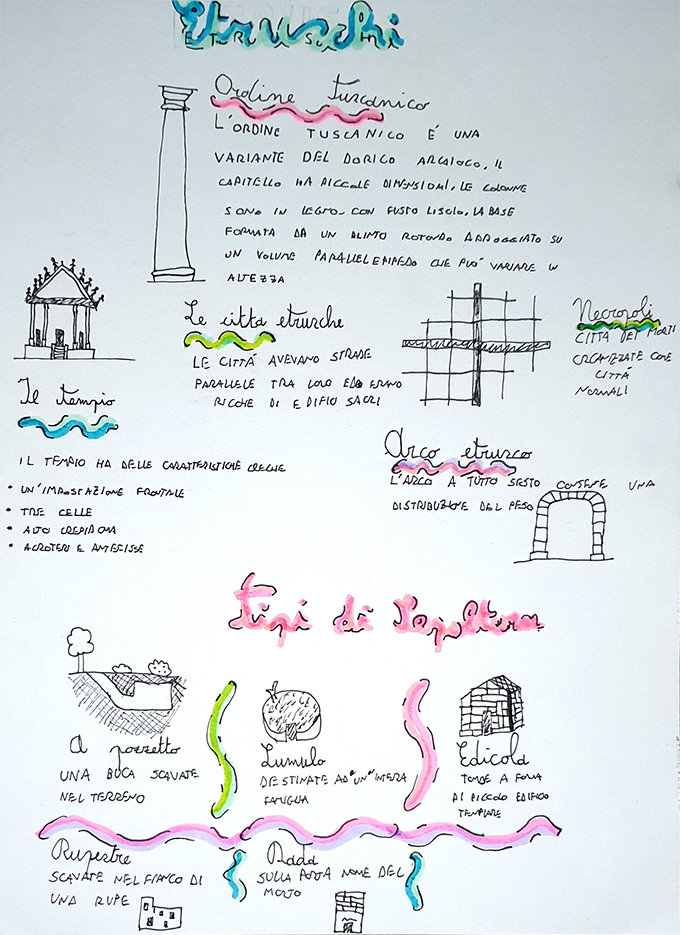 Etruschi
ETRUSCHI
Ordine tuscanico
L'ORDINE TUSCANICO É UNA
VARIANTE DEL DORICO ARCAICO, IL
CAPITELLO HA PICCOLE DIMENSIONI, LE COLONNE
SONO IN LEGNO CON FUSTO LISCIO, LA BASE
FORMATA DA UN PLINTO ROTONDO APPOGGIATO SU
UN VOLUME PARALLELEPIPEDO CHE PUÓ VARIARE IN
ALTEZZA
Le città etrusche
LE CITTÁ AVEVANO STRADE
PARALLELE TRA LORO ED ERANO
RICCHE DI EDIFICI SACRI
Necropoli
CITTÁ DEI MORTI
ORGANIZZATE COME
CITTÁ
NORMALI
Il tempio
IL TEMPIO HA DELLE CARATTERISTICHE GRECHE
• UN'IMPOSTAZIONE FRONTALE
• TRE CELLE
• ALTO CREPIDOMA
• ACROTERI E ANTEFISSE
Arco etrusco
L'ARCO A TUTTO SESTO CONTIENE UNA
DISTRIBUZIONE DEL PESO
Tipi di Sepoltura
A pozzetto
UNA BUCA SCAVATE
NEL TERRENO
Tumulo
DESTINATE AD UN'INTERA
FAMIGLIA
Edicola
TOMBE A FORMA
DI PICCOLO EDIFICIO
TEMPLARE
Rupestre
SCAVATE NEL FIANCO DI
UNA RUPE
Dado
SULLA PORTA NOME DEL
MORTO